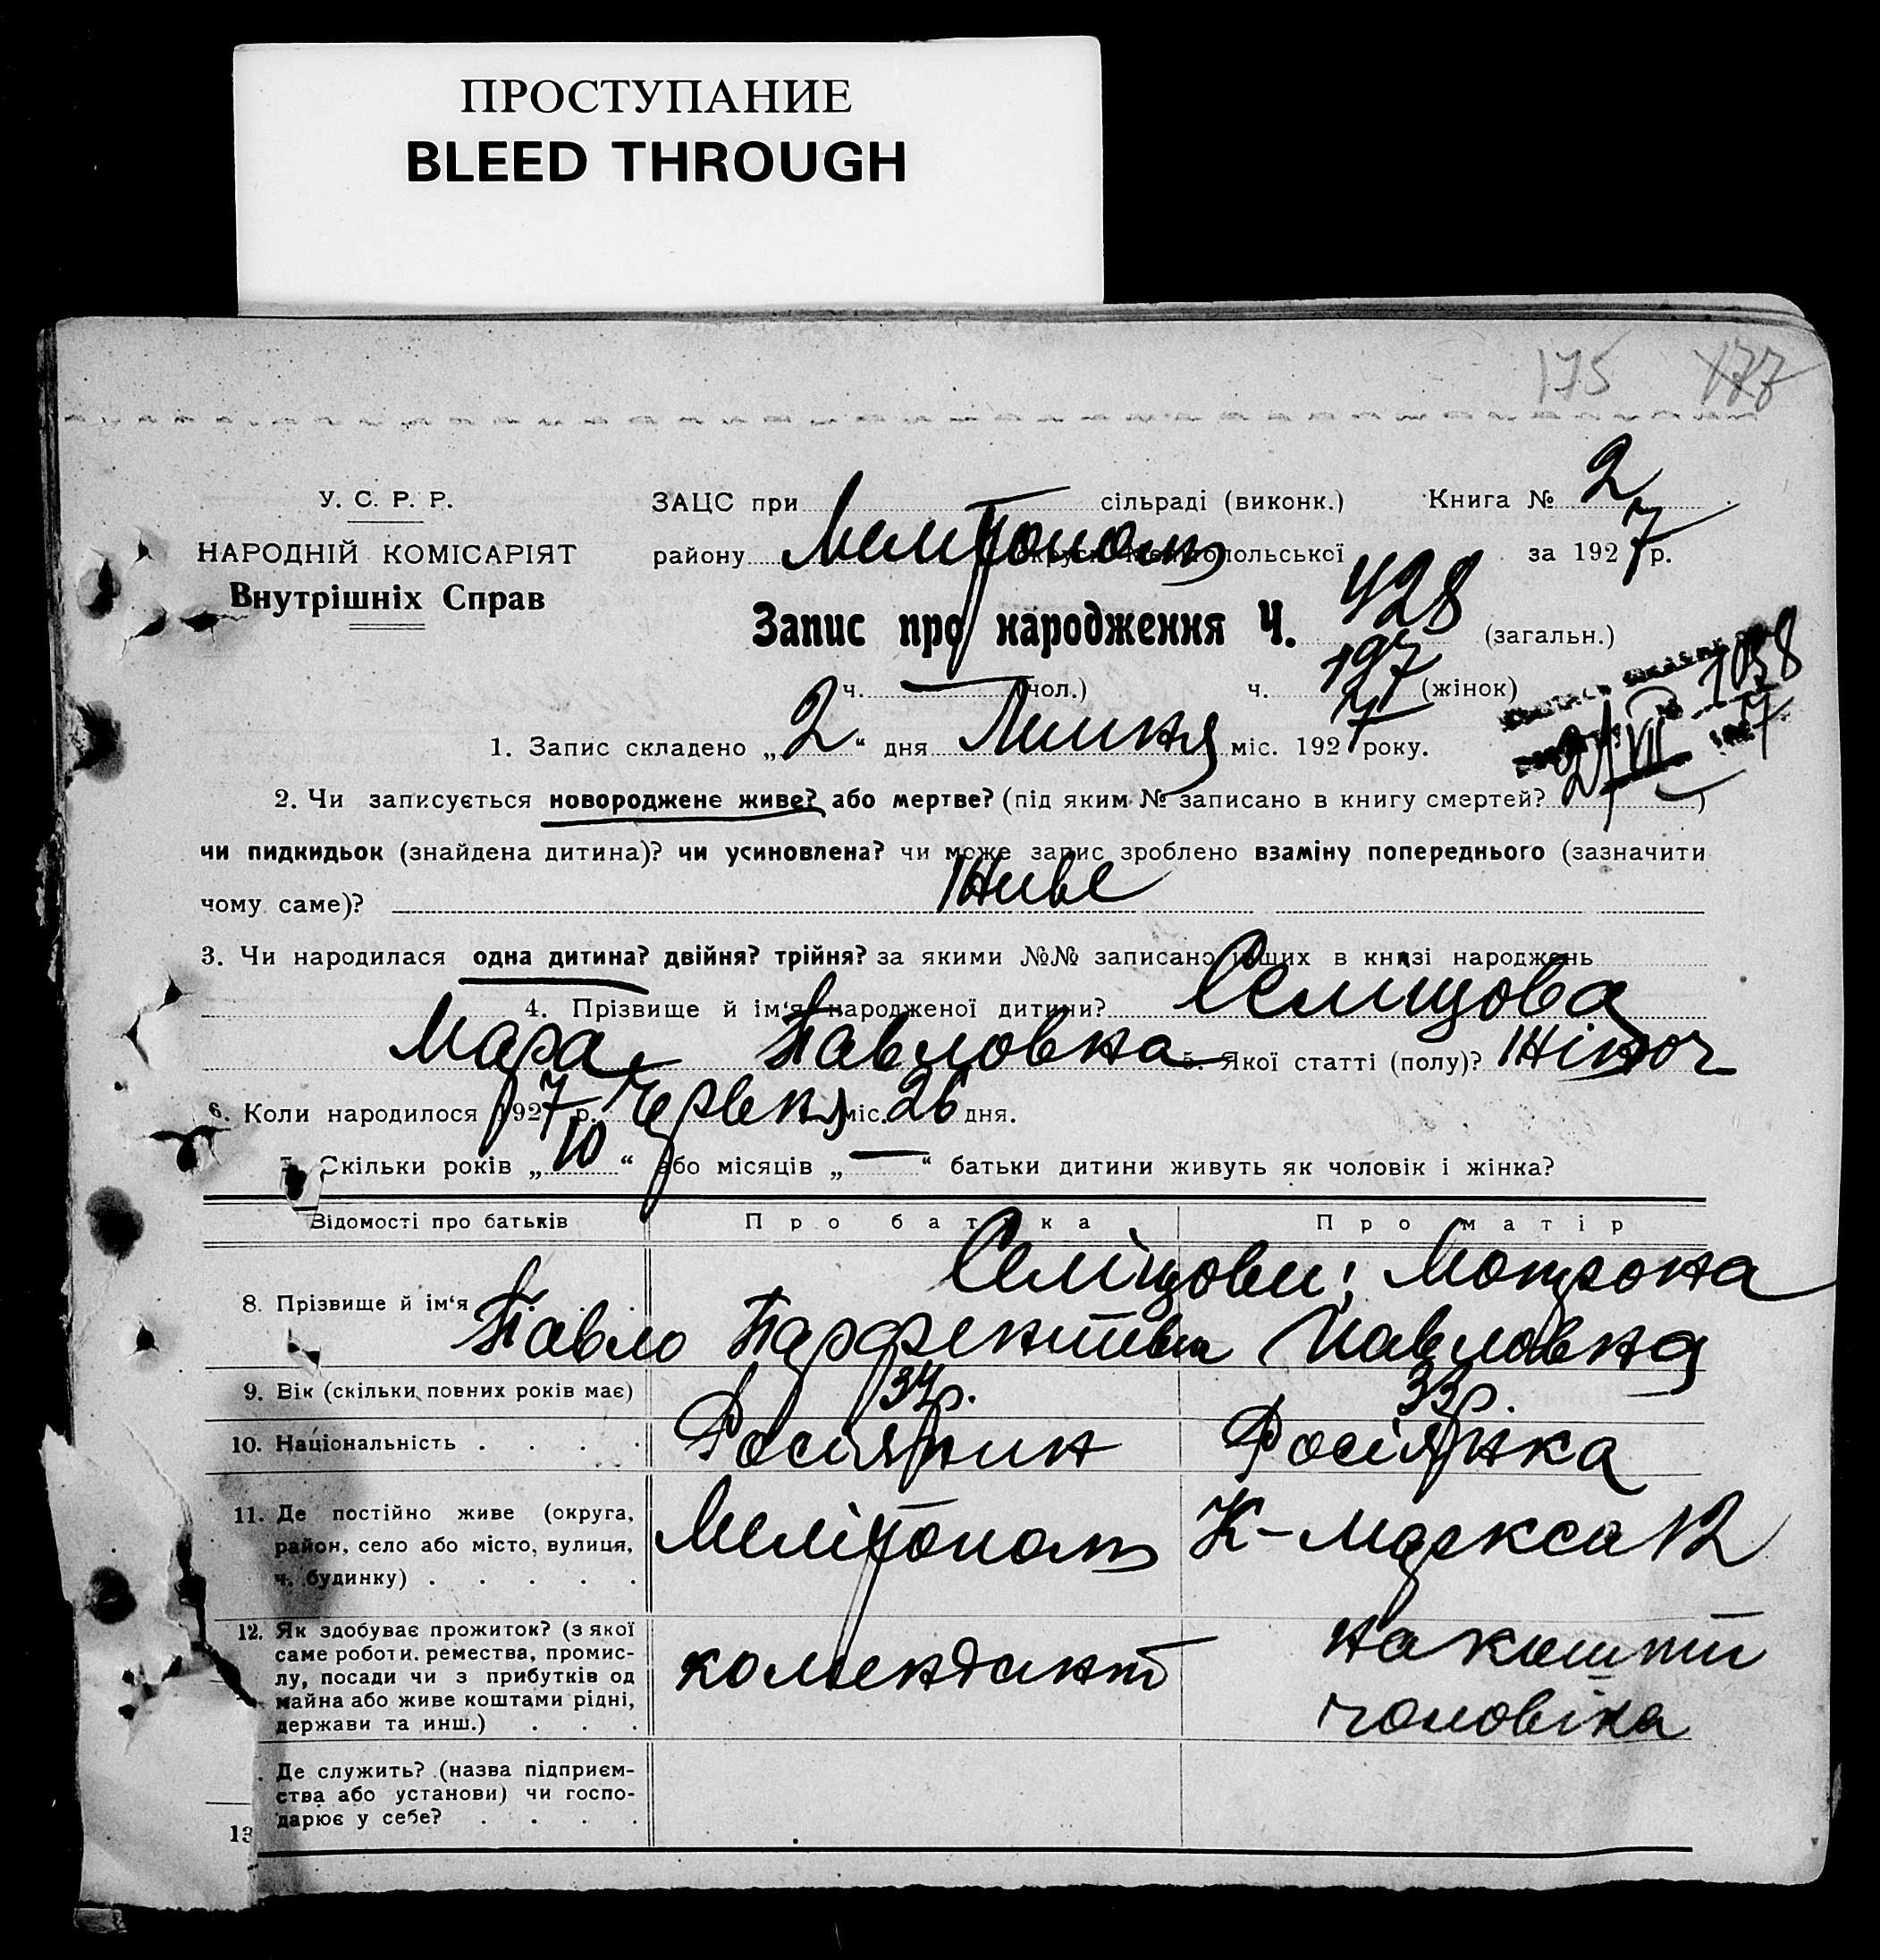 ПРОСТУПАНИЕ
BLEED THROUGH
175 177
У. С. Р. Р.
НАРОДНІЙ КОМІСАРІЯТ
Внутрішніх Справ
ЗАЦС при сільраді (виконк.) Книга № 2
району Мелітополь округи Мелітопольської за 1927 р.
Запис про народження Ч. 428 (загальн.)
ч. — (чол.) ч. 197 (жінок)
1038
21/VII 1927
1. Запис складено „2“ дня Липня міс. 1927 року.
2. Чи записується новороджене живе? або мертве? (під яким № записано в книгу смертей? — )
чи пидкидьок (знайдена дитина)? чи усиновлена? чи може запис зроблено взаміну попереднього (зазначити
чому саме)? Живе
3. Чи народилася одна дитина? двійня? трійня? за якими №№ записано інших в книзі народжень
4. Прізвище й ім‘я народженої дитини? Селищова
Мара Павловна 5. Якої статті (полу)? Жіноч
6. Коли народилося 1927 р. Червня міс. 26 дня.
7. Скільки років „10“ або місяців „—“ батьки дитини живуть як чоловік і жінка?
Відомості про батьків Про батька Про матір
8. Прізвище й ім‘я . . . Селіщови: Мотрона
Павло Парфентієв Павловна
9. Вік (скільки повних років має) 34 р. 33 р.
10. Національність . . . . Росіянин Росіянка
11. Де постійно живе (округа,
район, село або місто, вулиця,
ч. будинку) . . . . . Мелітополь К-Маркса 12
12. Як здобуває прожиток? (з якої
саме роботи, ремества, промис-
лу, посади чи з прибутків од
майна або живе коштами рідні,
держави та инш.) . . . комендант на кошти
чоловіка
13. Де служить? (назва підприєм-
ства або установи) чи госпо-
дарює у себе? . . . .